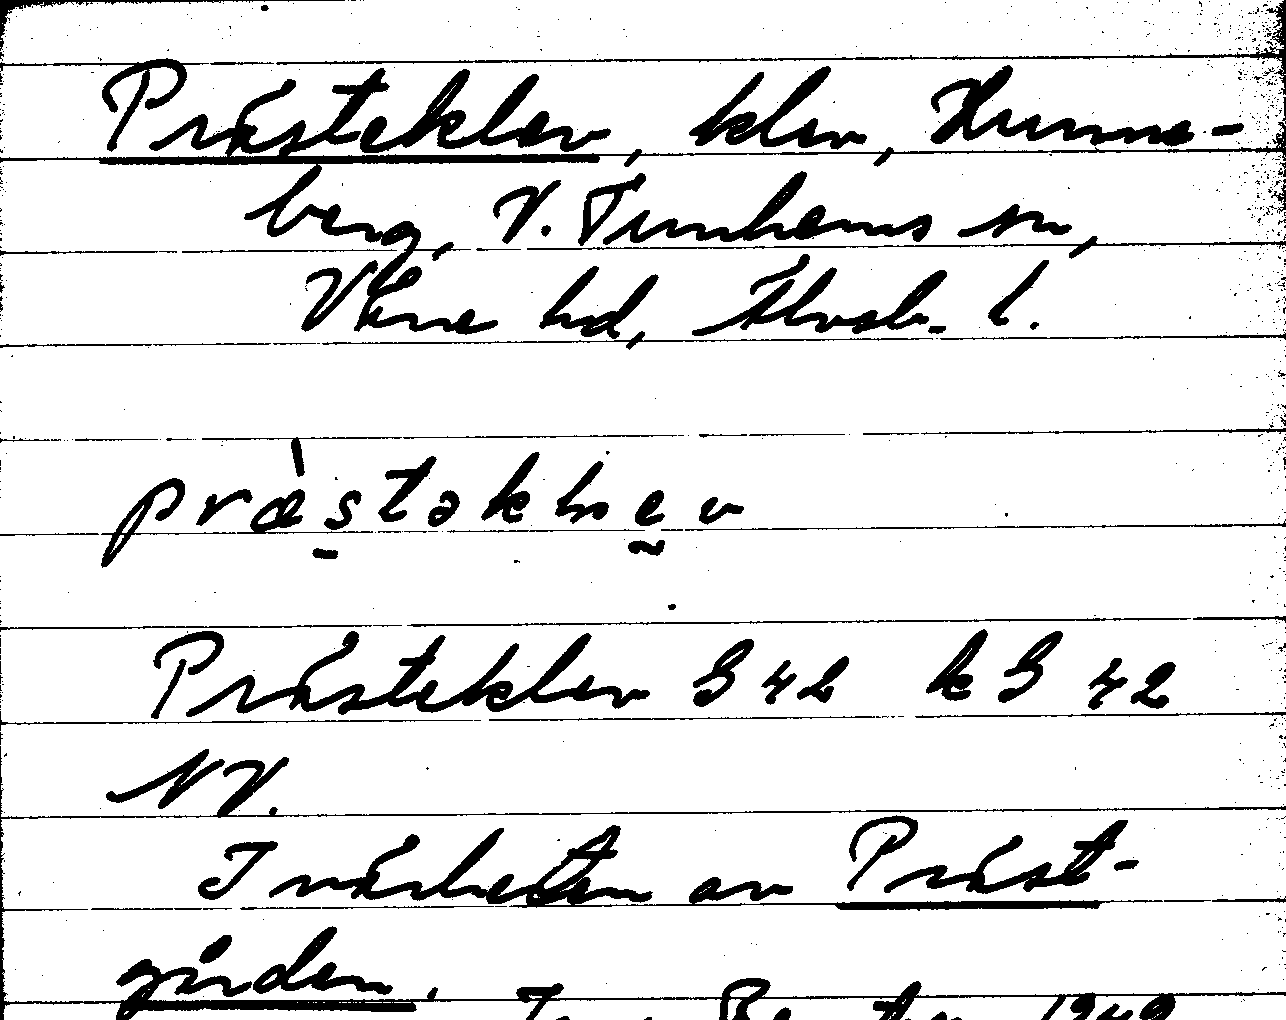 Prästeklev, klev, Hunne-
berg, V. Tunhems sn,
Väne hd, Älvsb. l.
præ̀stəklev
Prästeklev G 42 kG 42
NV.
I närheten av Präst-
gården.
1949